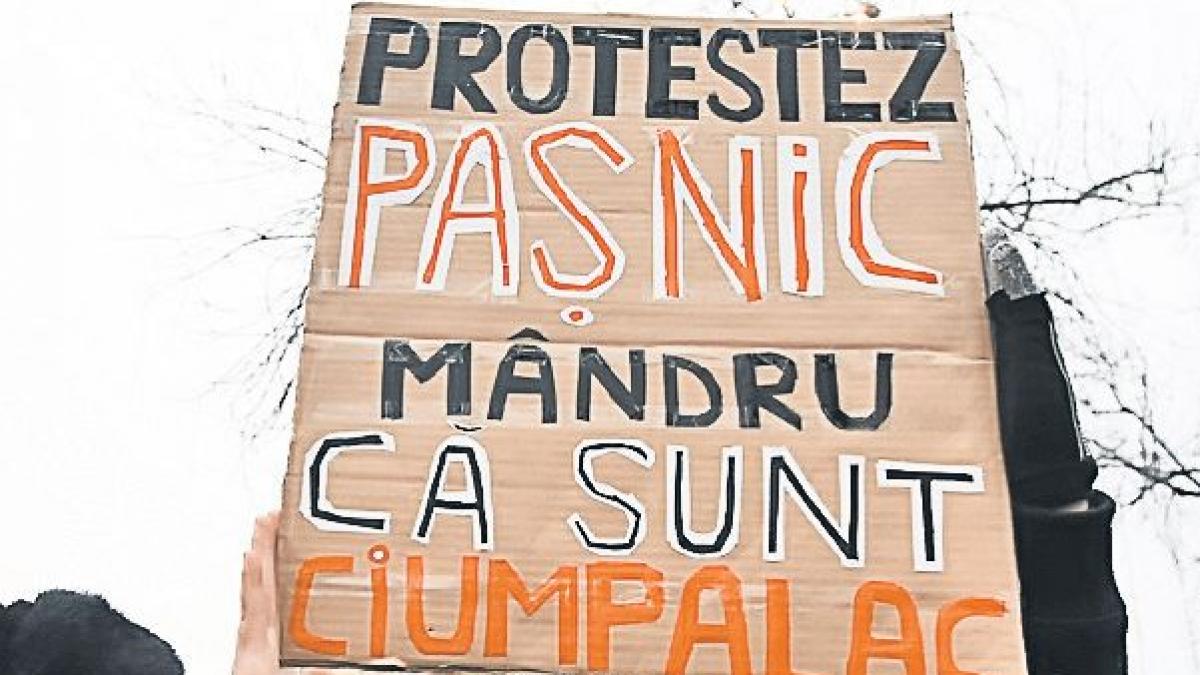 PROTESTEZ
PAȘNIC
MÂNDRU
CĂ SUNT
CIUMPALAC